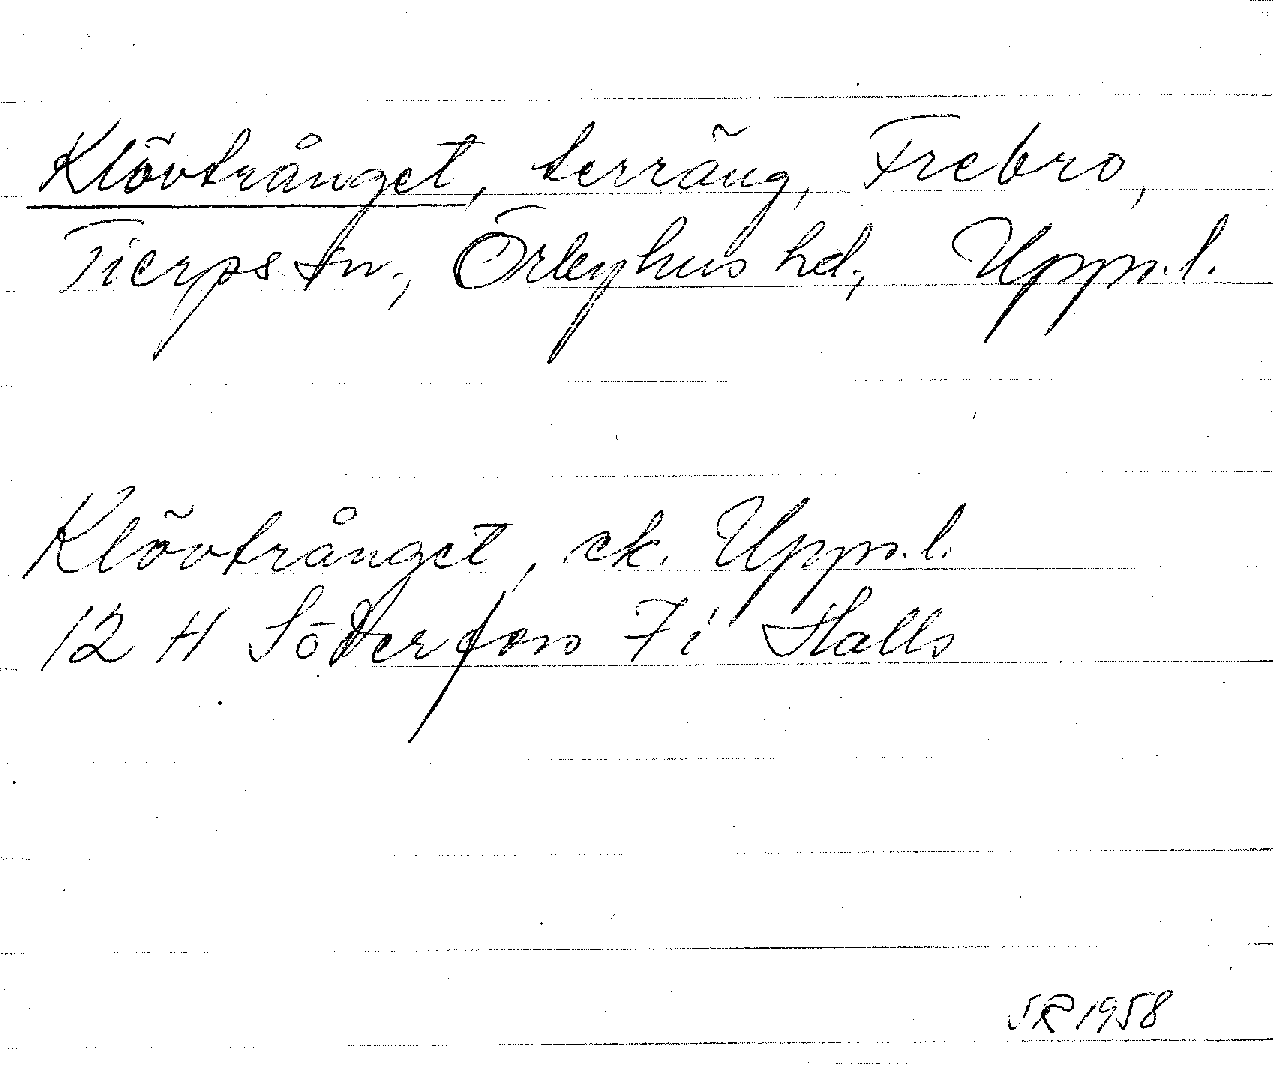 Klövtrånget, terräng, Frebro,
Tierps sn, Örbyhus hd, Upps.l.
Klövtrånget, ek. Upps.l.
12 H Söderfors 7i Halls
SR 1958